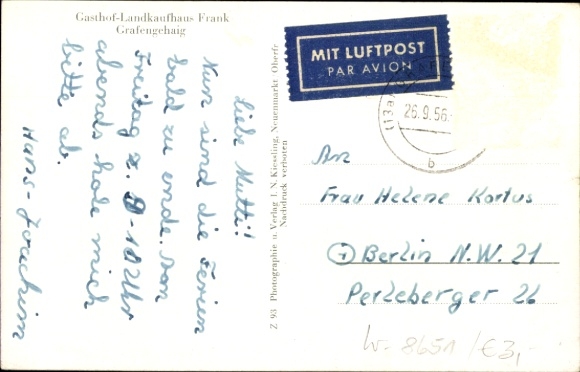 Gasthof-Landkaufhaus Frank
Grafengehaig
Liebe Mutti!
Nun sind die Ferien
bald zu ende. Am
Freitag z. 9-10 Uhr
abends hole mich
bitte ab.
Hans-Joachim
Z 93 Photographie u. Verlag I. N. Kiessling, Neuenmarkt Oberfr
Nachdruck verboten
MIT LUFTPOST
PAR AVION
(13a)
26.9.56.
b
An
Frau Helene Kortus
1 Berlin N.W. 21
Perleberger 26
W-8651 /€3,-